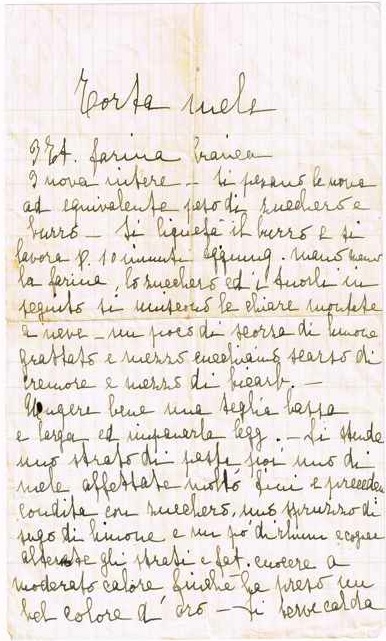 Torta mele
3 Et. farina bianca
3 uova intere - Si pesano le uova
ad equivalente peso di zucchero e
burro - Si liquefà il burro e si
lavora p. 10 minuti aggiung. mano mano
la farina, lo zucchero ed i tuorli in
seguito si uniscono le chiare montate
a neve - un poco di scorza di limone
grattato e mezzo cucchiaino scarso di
cremore e mezzo di bicarb. -
Ungere bene una teglia bassa
e larga ed impanarla legg. - Si stende
uno strato di pasta poi uno di
mele affettate molto fini e preceden
condita con zucchero, uno spruzzo di
sugo di limone e un pó di rhum e cognac
alternate gli strati e fat. cuocere a
moderato calore finchè ha preso un
bel colore d'oro - Si serve calda